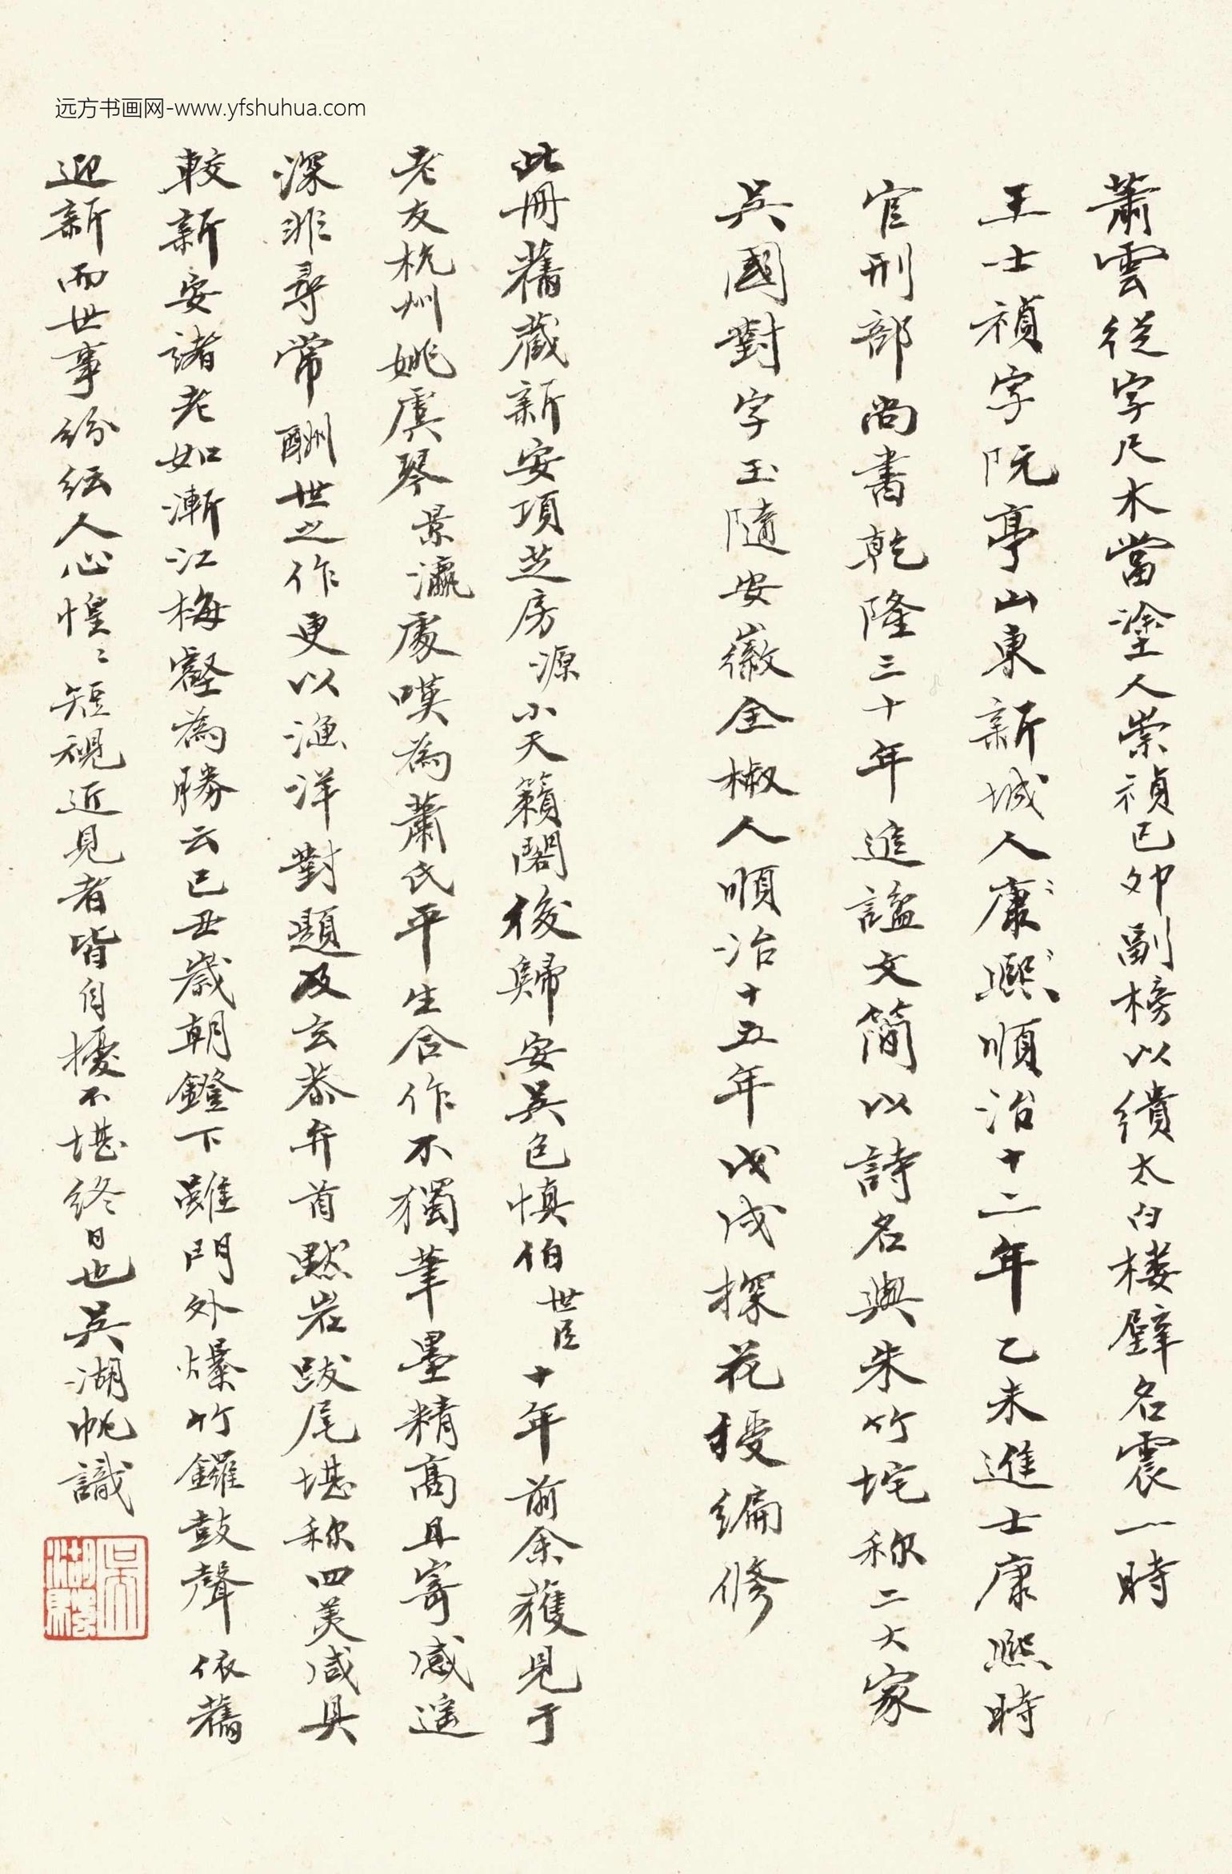 远方书画网-www.yfshuhua.com
蕭雲從字尺木當塗人崇禎己卯副榜以繢太白樓壁名震一時
王士禎字阮亭山東新城人康熙順治十二年乙未進士康熙時
官刑部尚書乾隆三十年追謚文簡以詩名與朱竹垞称二大家
吳國對字玉隨安徽全椒人順治十五年戊戌探花授編修
此冊舊藏新安項芝房源小天籟閣後歸安吳包慎伯世臣十年前余獲見于
老友杭州姚虞琴景瀛處嘆為蕭氏平生合作不獨筆墨精高且寄感遥
深非尋常酬世之作更以漁洋對題及玄恭弁首默岩跋尾堪称四美咸具
較新安諸老如漸江梅壑為勝云己丑歲朝鐙下雖門外爆竹鑼鼓聲依舊
迎新而世事紛紜人心惶〻短視近見者皆自擾不堪終日也吳湖帆識
吳湖驏